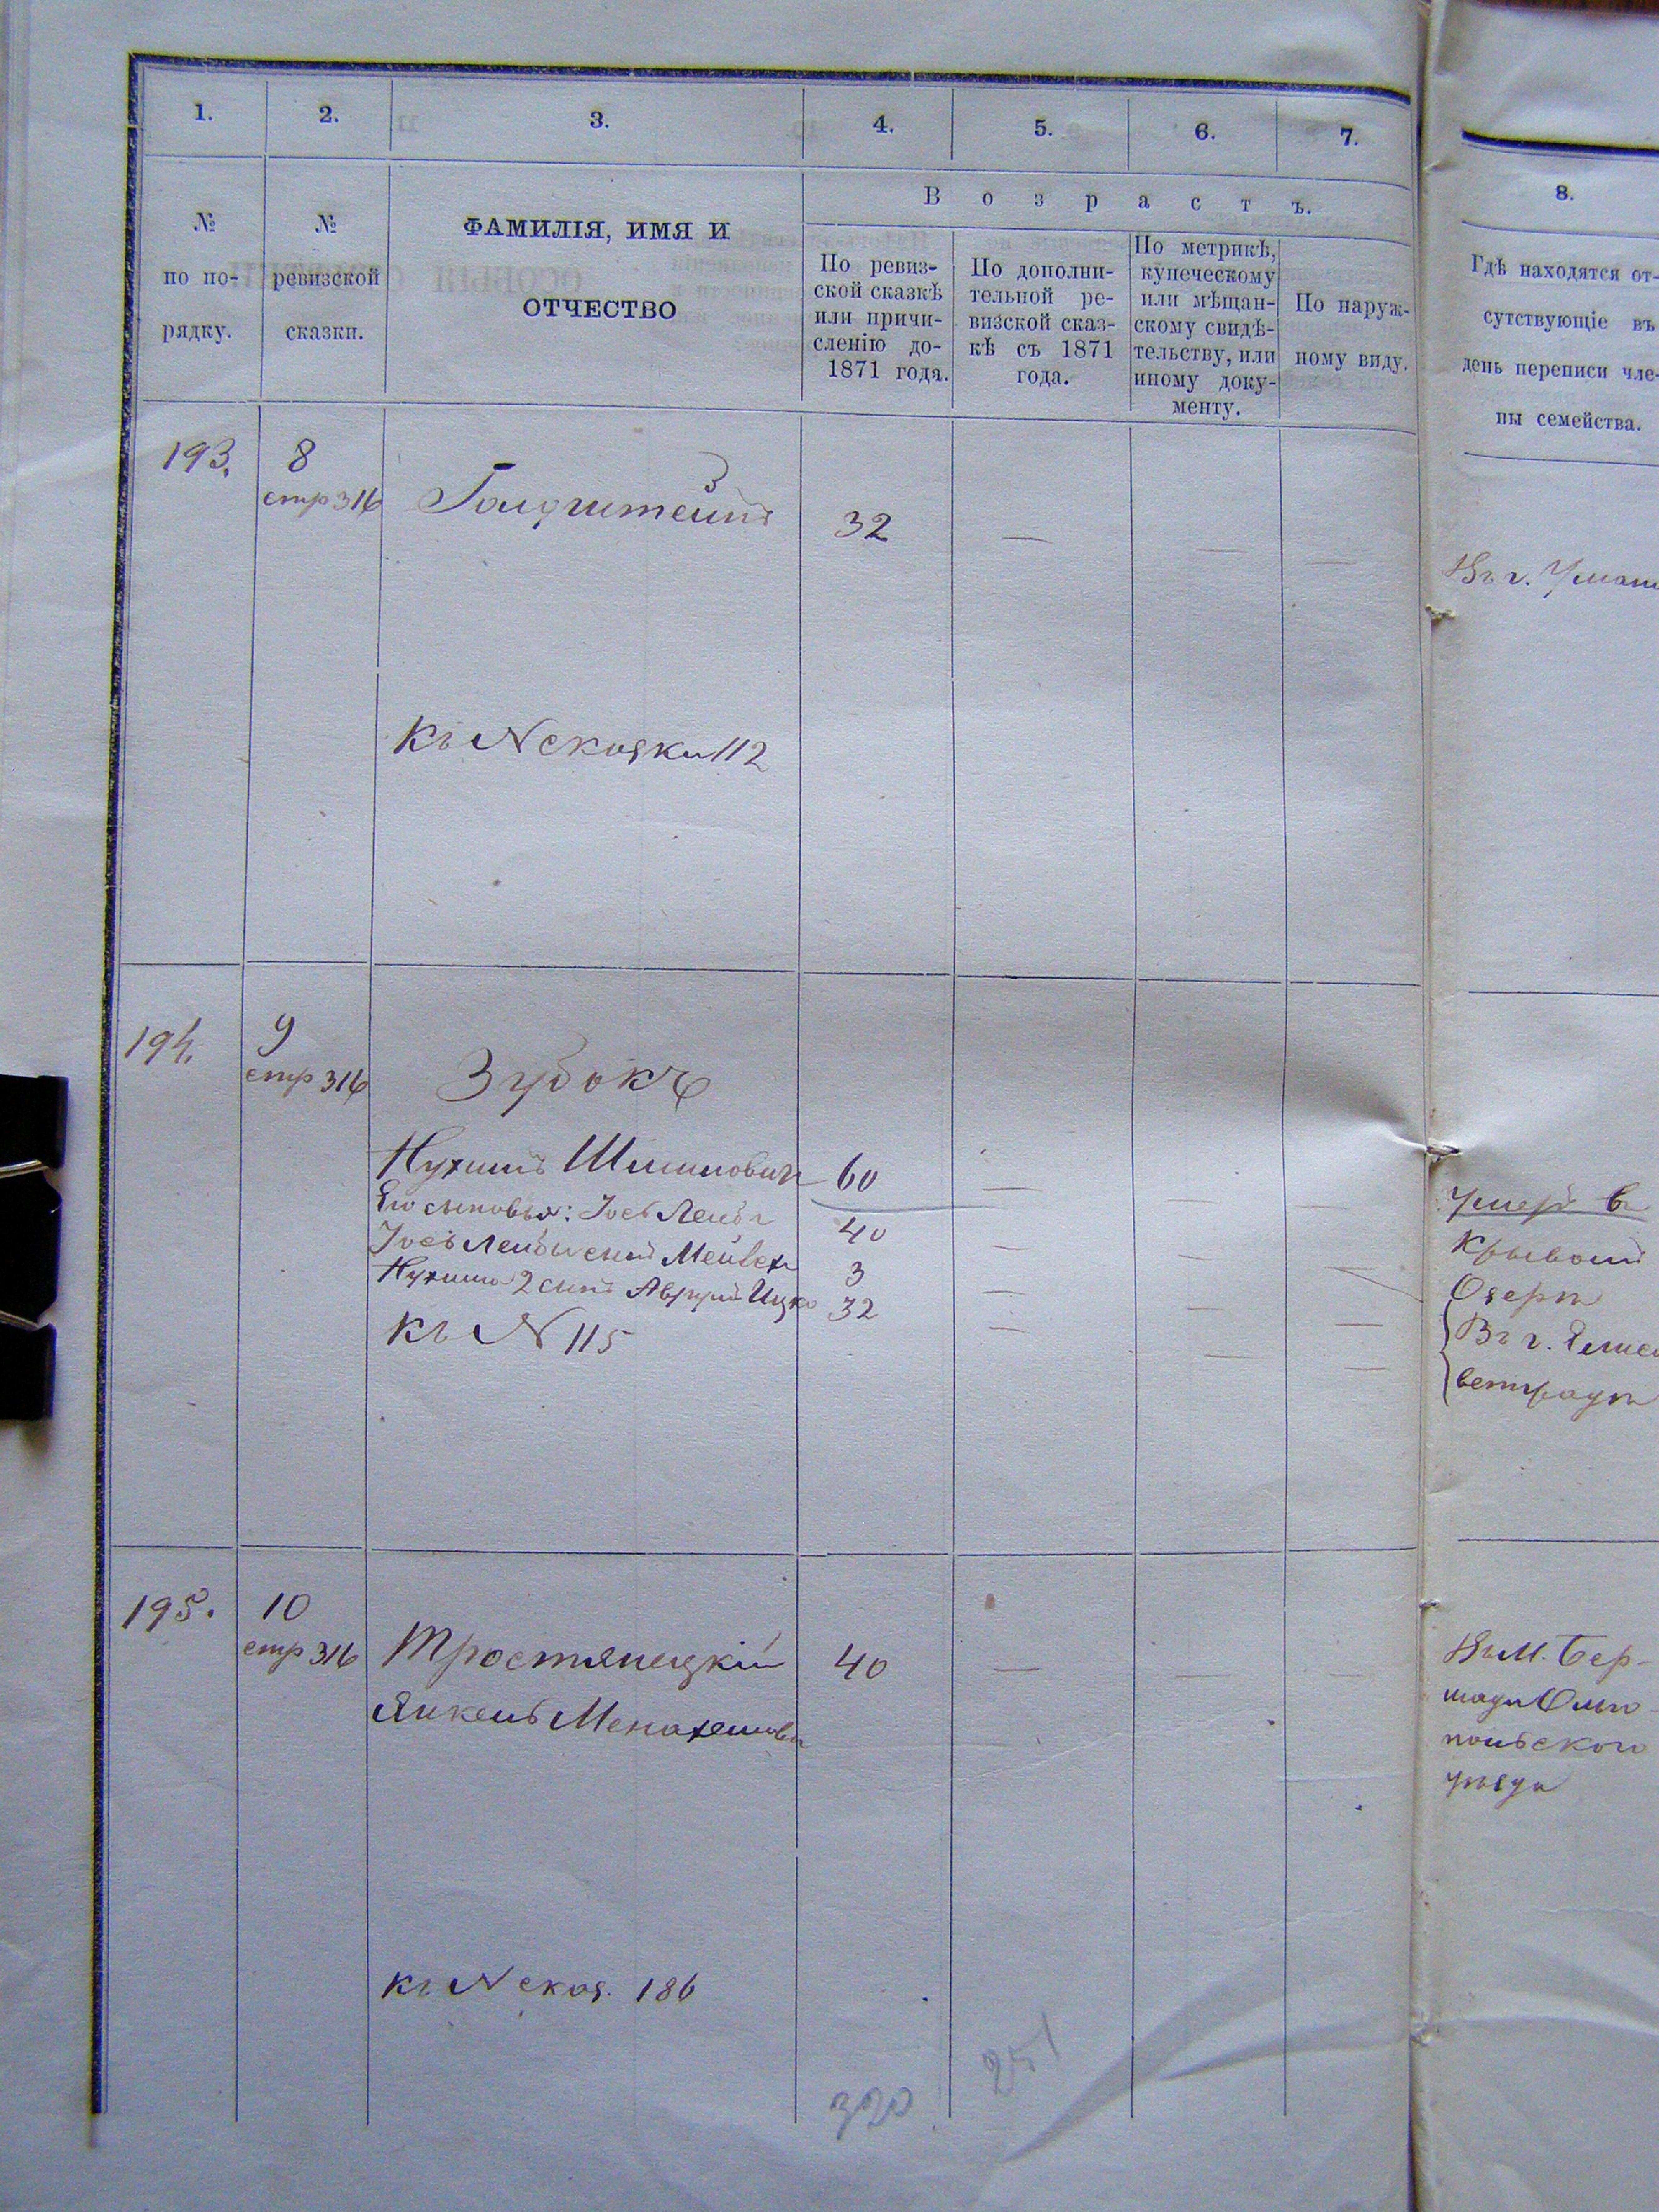 1. 2. 3. 4. 5. 6. 7.
№ по порядку.
№ ревизской сказки.
ФАМИЛІЯ, ИМЯ И
ОТЧЕСТВО
Возрастъ.
По ревиз-
ской сказкѣ
или причи-
сленію до-
1871 года.
По дополни-
тельной ре-
визской сказ-
кѣ съ 1871
года.
По метрикѣ,
купеческому
или мѣщан-
скому свидѣ-
тельству, или
иному доку-
менту.
По наруж-
ному виду.
8.
Гдѣ находятся от-
сутствующіе въ
день переписи чле-
ны семейства.
193. 8
стр 316 Голдштейнъ 32
Въ г. Умани
Къ № сказки 112
194. 9
стр 316 Зубокъ
Нухимъ Шимонович 60
Его сыновья: Іось Лейба 40
Іось Лейбы сынъ Мейвех 3
Нухима 2 сынъ Аврумъ Ицко 32
Къ № 115
Умеръ въ
Кривомъ
Озерѣ
Въ г. Елиса
ветградѣ
195. 10
стр 316 Тростянецкій 40
Янкель Менахемовъ
Въ М. Бер-
шади Ольго
польского
уѣзда
къ № сказ. 186
320 251